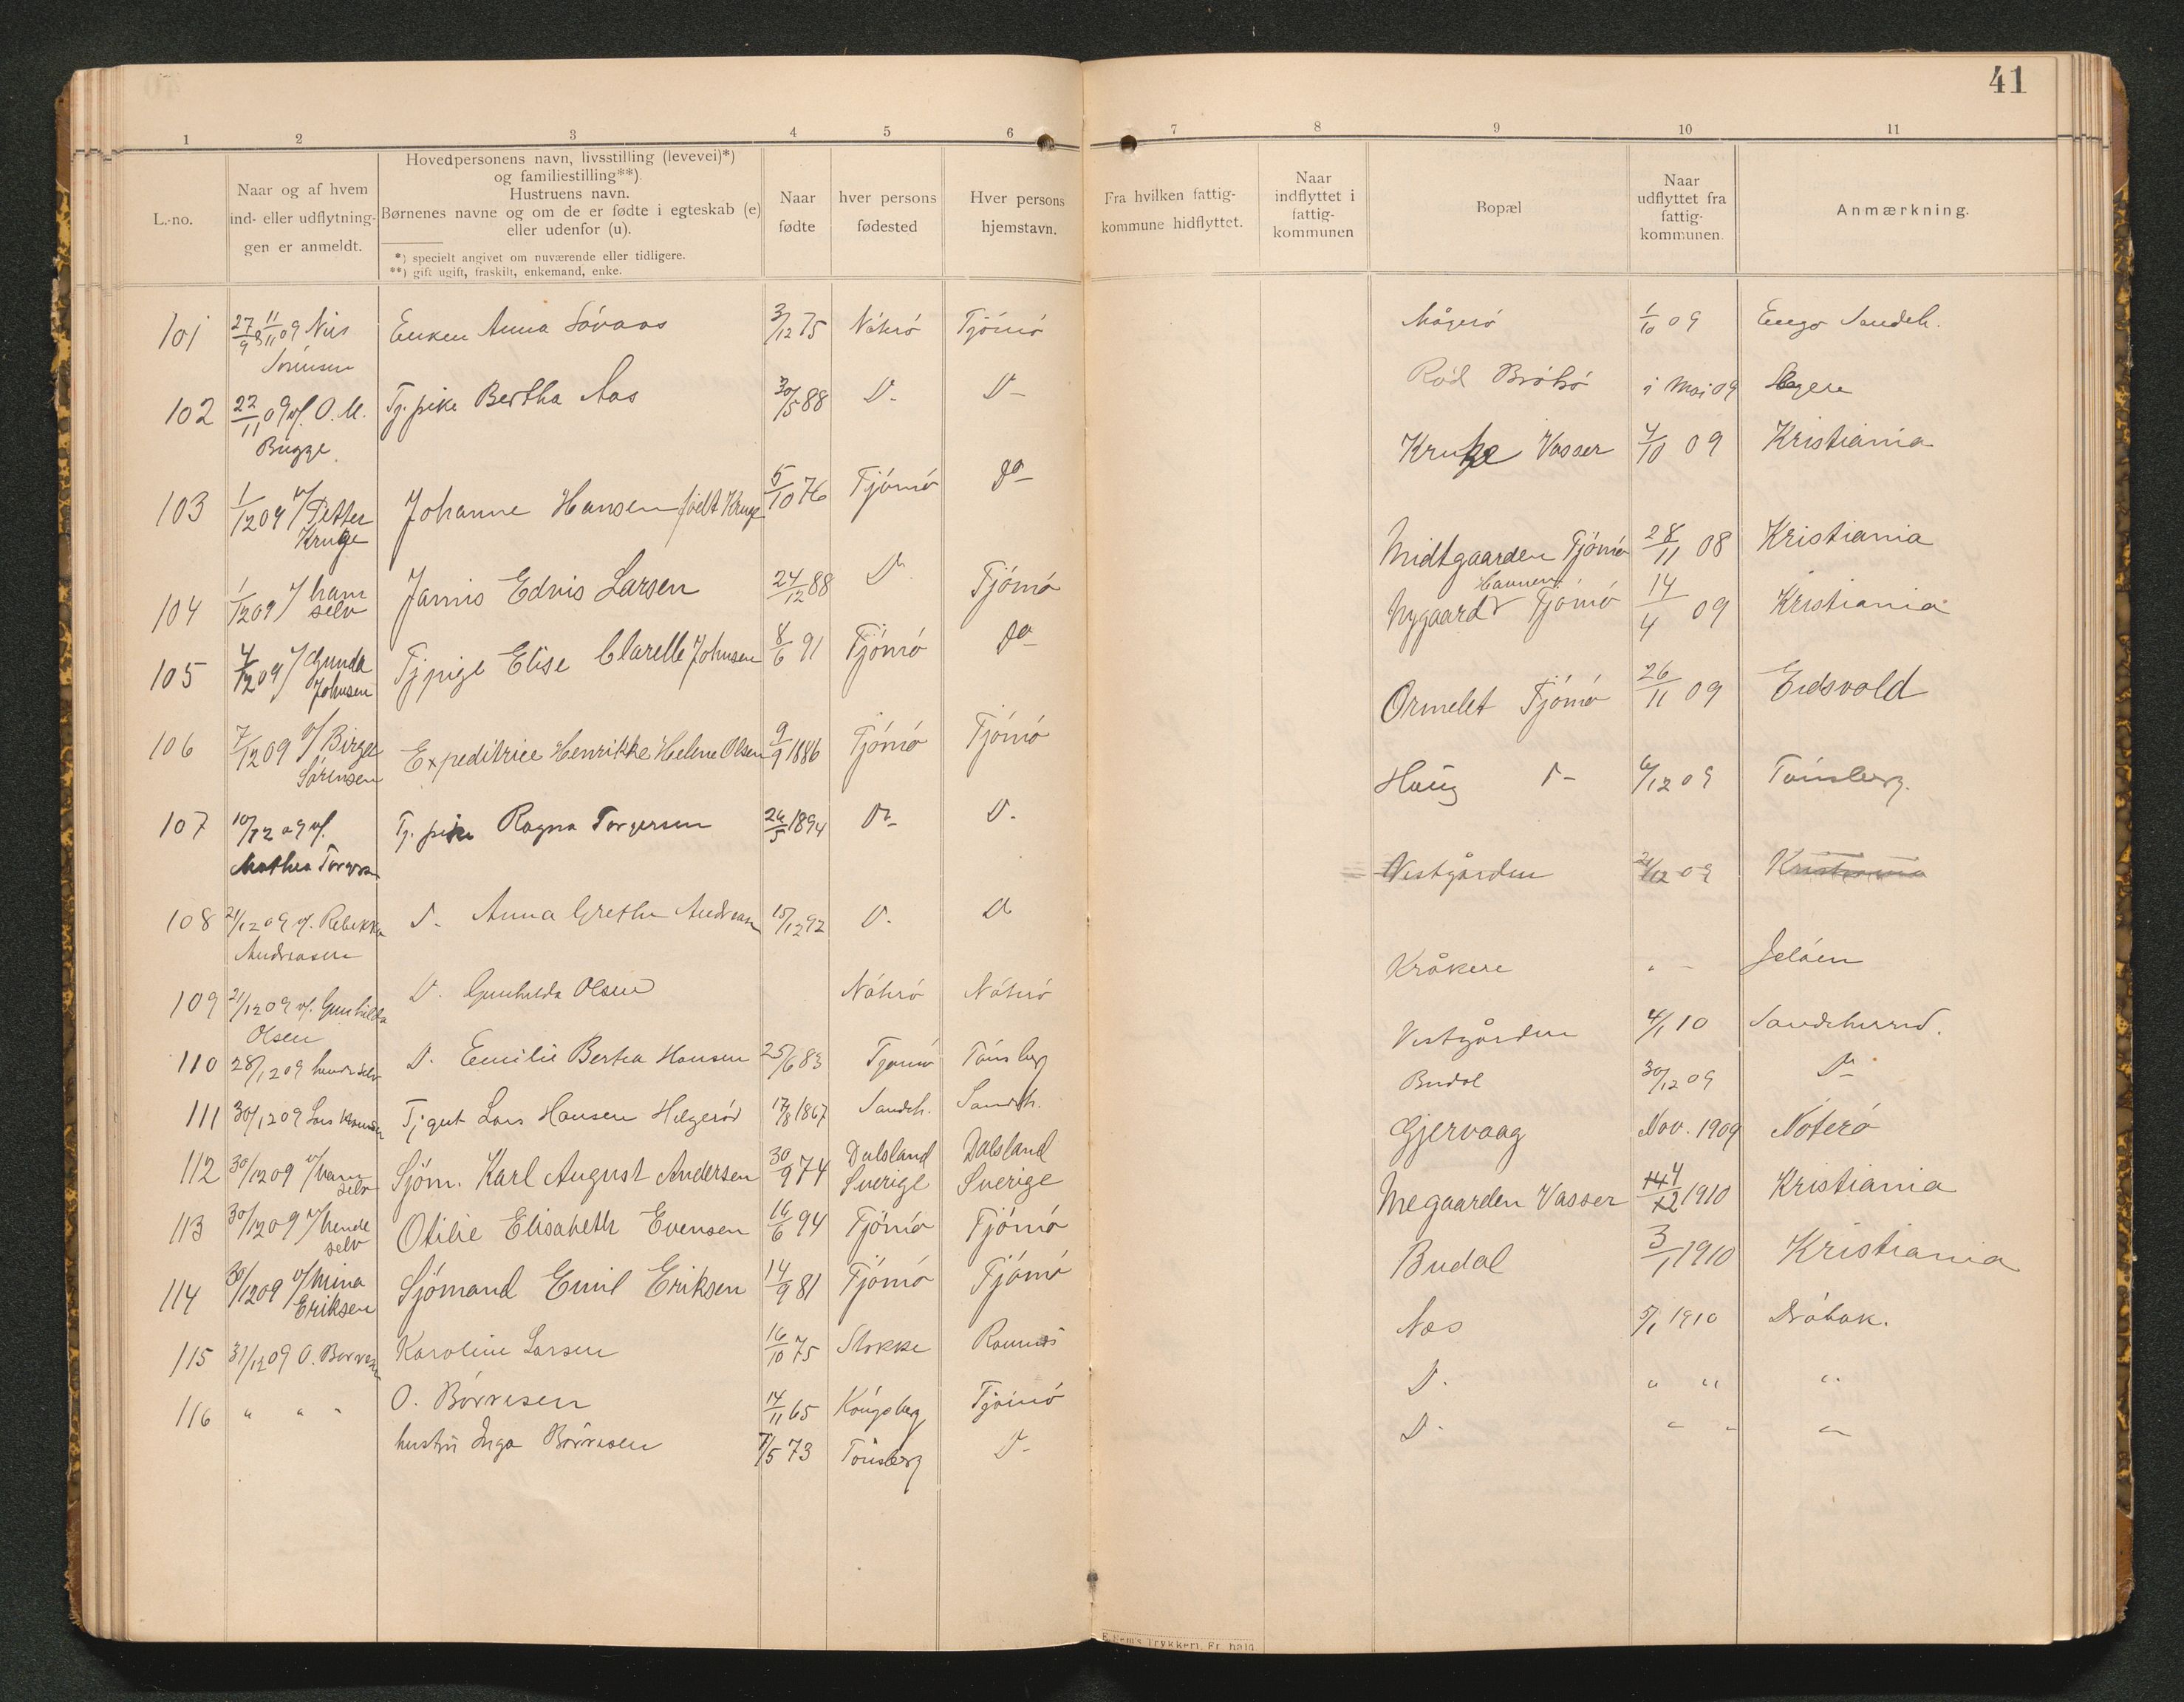 41
1 2 3 4 5 6 7 8 9 10 11
L.-no.
Naar og af hvem
ind- eller udflytning-
gen er anmeldt.
Hovedpersonens navn, livsstilling (levevei)*)
og familiestilling**).
Hustruens navn.
Børnenes navne og om de er fødte i egteskab (e)
eller udenfor (u).
*) specielt angivet om nuværende eller tidligere.
**) gift ugift, fraskilt, enkemand, enke.
Naar
fødte
hver persons
fødested
Hver persons
hjemstavn.
Fra hvilken fattig-
kommune hidflyttet.
Naar
indflyttet i
fattig-
kommunen
Bopæl
Naar
udflyttet fra
fattig-
kommunen.
Anmærkning.
101 27/9 & 11/11 09 Nils Enken Anna Sövaas 3/12 75 Nøtterø Tjömö Mågerö 1/10 09 Sandeh.
Sörensen
102 22/11 09 v/. O. M. Tj. pike Bertha Aas 30/5 88 D- D- Röd i Mai 09
Bugge
103 1/12 09 v/ Petter Johanne Hansen födt Kruge 5/10 76 Tjömö do Kruge Vasser 4/10 09 Kristiania
Kruge
104 1/12 09 v/ ham Jannis Edvis Larsen 24/12 88 Do Tjömö Midtgaarden Tjömö 28/11 08 Kristiania
selv
105 4/12 09 v/ Gunda Tj pige Elise Clarelle Johnsen 8/6 91 Tjömö do Nygaard Havnen Tjömö 14/4 09 Kristiania
Johnsen
106 7/12 09 v/ Birger Expeditrice Henrikke Helene Olsen 9/9 1886 Tjömö Tjömö Ormelet Tjömö 26/11 09 Eidsvold
Sörensen
107 10/12 09 v/. Tj. pike Ragna Torgersen 26/5 1894 Do D- Haug D- 6/12 09 Tönsberg.
Mathea
108 21/12 09 v/. Rebekka D- Anna Grethe Andreasen 15/12 92 D- Do Vestgården 21/12 09 Kristiania
Andreasen
109 21/12 09 v/. Gunhilda D. Gunhilda Olsen Nöterö Nöterö Kråkere " - Jelöen
Olsen
110 28/12 09 hende selv D. Emilie Bertea Hansen 25/6 83 Tjömö Tönsberg Vestgården 4/1 10 Sandeherred.
111 30/12 09 Lars Hansen Tj gut Lars Hansen Helgeröd 17/8 1867 Sandeh. Sandeh. Budal 30/12 09 Do
112 30/12 09 v/ ham Sjöm. Karl August Andersen 30/9 74 Dalsland Dalsland Gjervaag Nov. 1909 Nöterö
selv Sverige Sverige
113 30/12 09 v/ hende Otilie Elisabeth Evensen 16/6 94 Tjömö Tjömö Megaarden Vasser 1910 Kristiania
selv
114 30/12 09 v/ Mina Sjömand Emil Eriksen 14/9 81 Tjömö Tjömö Budal 3/1 1910 Kristiania
Eriksen
115 31/12 09 O. Börresen Karoline Larsen 16/10 75 Stokke Ramnes Næs 5/1 1910 Dröbak.
116 " " " O. Börresen 14/11 65 Kongsberg Tjömö D. " " "
hustru Inga Börresen 7/5 73 Tönsberg D- D- " " "
E. Sem's Trykkeri, Fr. hald.